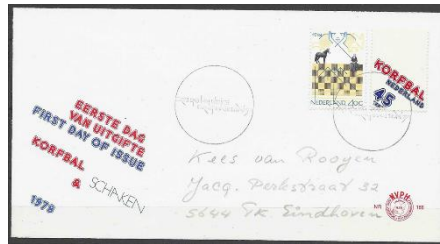 EERSTE DAG
VAN UITGIFTE
FIRST DAY OF ISSUE
KORFBAL
& SCHAKEN
1978
NEDERLAND 40C
KORFBAL
NEDERLAND
45
Kees van Rooyen
Jacq. Perkstraat 32
5644 PK. Eindhoven
NVPH
NR